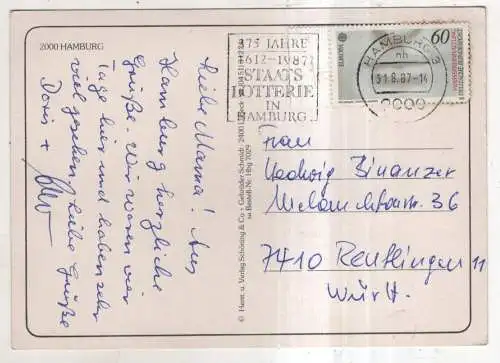 2000 HAMBURG
Liebe Mama! Aus
Hamburg herzliche
Grüße. Wir waren vier
Tage hier und haben sehr
viel gesehen, Liebe Grüße
Doris +
© Hans u. Verlag Schöning & Co + Gebrüder Schmidt · 2400 Lübeck
Bestell-Nr. Hbg 7029
375 JAHRE
1612-1987
STAATS
LOTTERIE
IN
HAMBURG
HAMBURG 3
nh
31.8.87-14
2000
EUROPA
60
DEUTSCHE BUNDESPOST
Frau
Hedwig Binanzer
Melanchthonstr. 36
7410 Reutlingen 11
Württ.